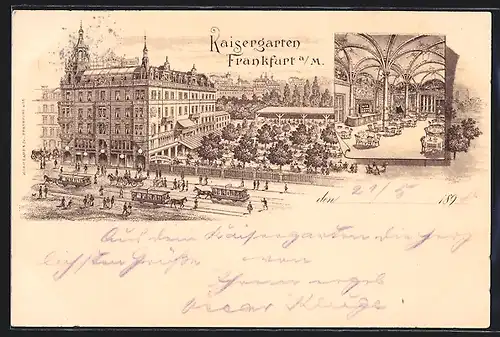 Kaisergarten
Frankfurt a/M.
den 21/5 189
Aus dem Kaisergarten die herz
lichsten Grüße von
Ihrem ergeb
Oscar Kluge